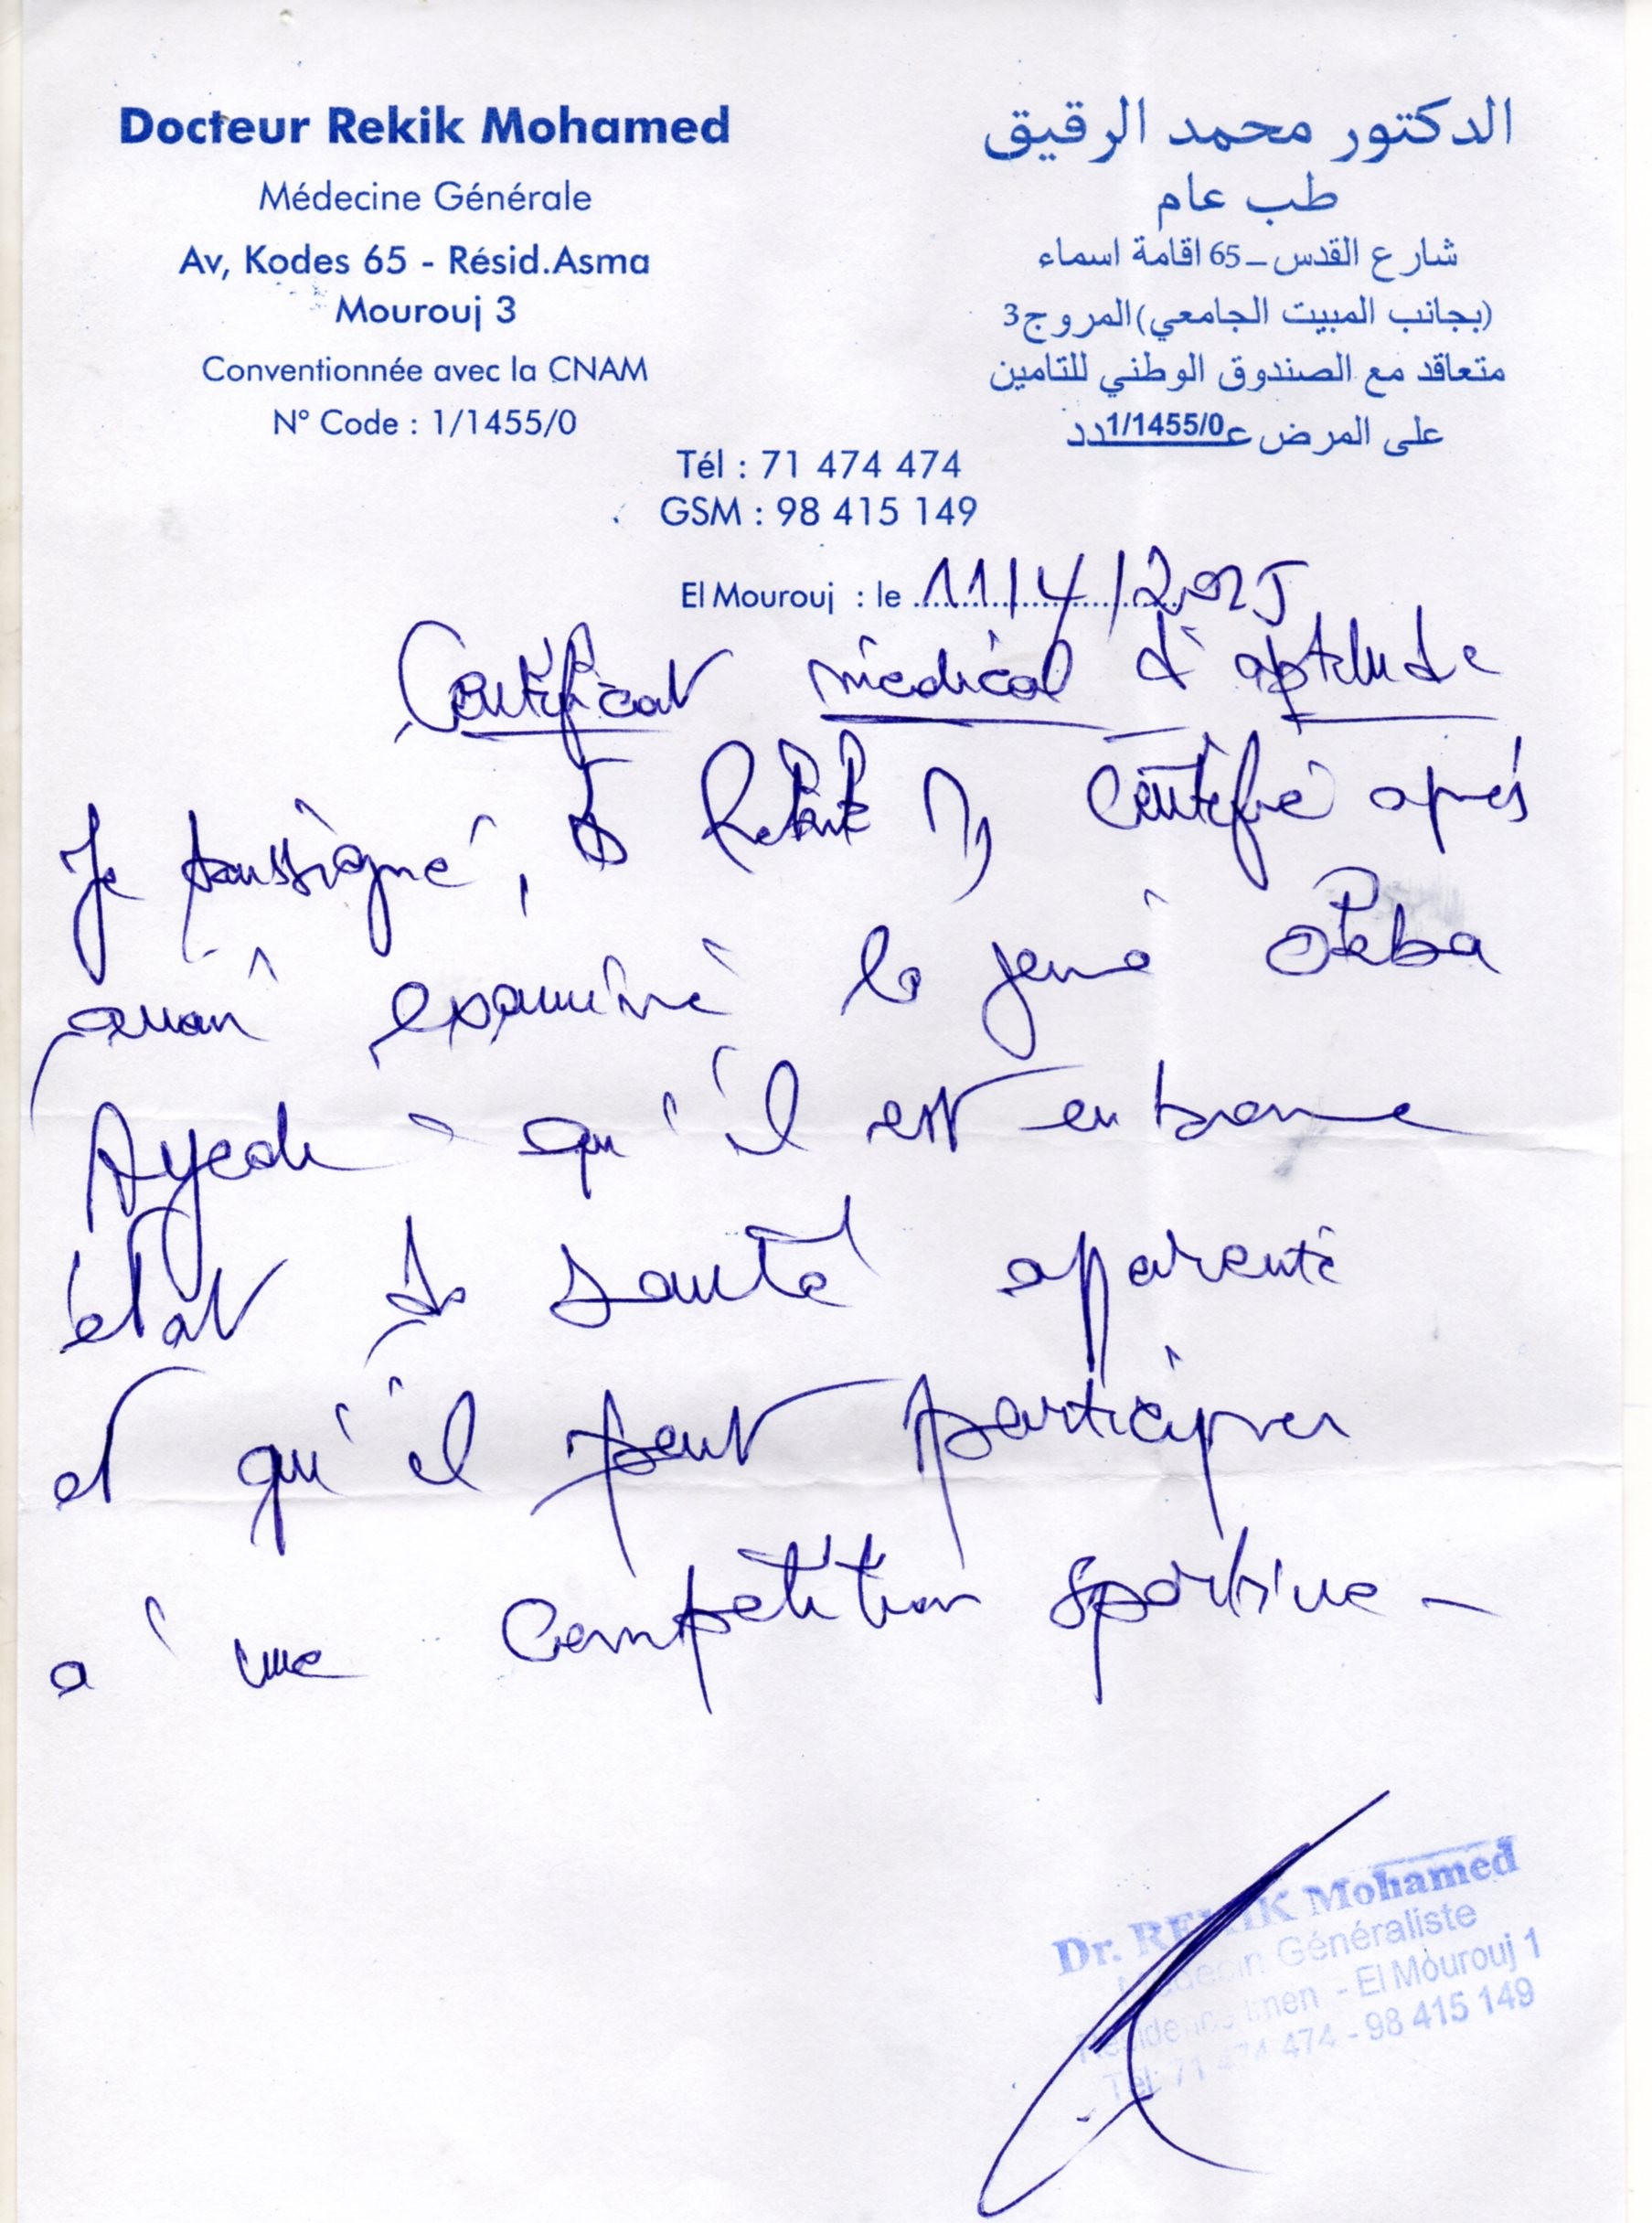 Docteur Rekik Mohamed
Médecine Générale
Av, Kodes 65 - Résid.Asma
Mourouj 3
Conventionnée avec la CNAM
N° Code : 1/1455/0
الدكتور محمد الرقيق
طب عام
شارع القدس – 65 اقامة اسماء
(بجانب المبيت الجامعي) المروج 3
متعاقد مع الصندوق الوطني للتامين
على المرض ع1/1455/0دد
Tél : 71 474 474
GSM : 98 415 149
El Mourouj : le 11/4/2025
Certificat médical d'aptitude
Je soussigné, Dr Rekik M certifie après
avoir examiné le jeune Okba
Ayedi qu'il est en bonne
état de santé apparente
et qu'il peut participer
à une compétition sportive -
Dr. REKIK Mohamed
Médecin Généraliste
Résidence Imen - El Mourouj 1
Tél: 71 474 474 - 98 415 149